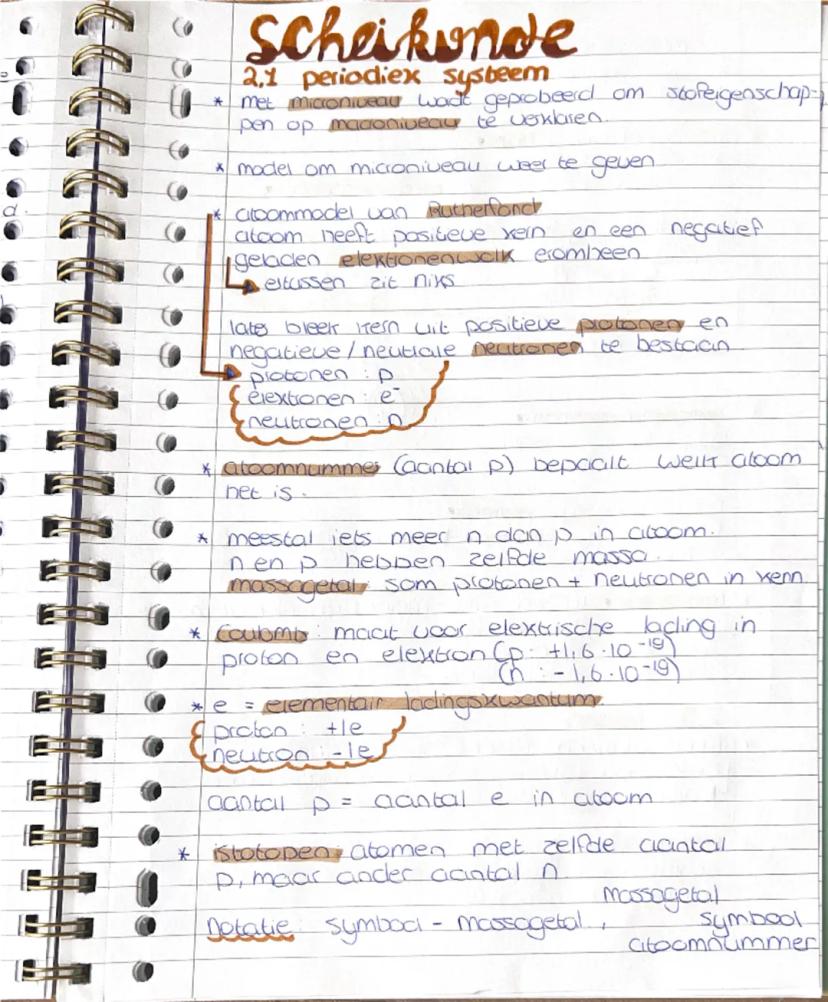 Scheikunde
2,1 periodiek systeem
* met microniveau wordt geprobeerd om stofeigenschap-
pen op macroniveau te verklaren.
* model om microniveau weer te geven
* atoommodel van Rutherford
atoom heeft positieve kern en een negatief
geladen elektronenwolk eromheen
ertussen zit niks
later bleek kern uit positieve protonen en
negatieve/neutrale neutronen te bestaan
protonen : p
elektronen : e⁻
neutronen : n
* atoomnummer (aantal p) bepaalt welk atoom
het is.
* meestal iets meer n dan p in atoom.
n en p hebben zelfde massa.
massagetal: som protonen + neutronen in kern
* Coulomb : maat voor elektrische lading in
proton en elektron (p: +1,6·10⁻¹⁹)
(n : -1,6·10⁻¹⁹)
* e = elementair ladingskwantum.
proton : +1e
neutron : -1e
aantal p = aantal e in atoom
* istotopen: atomen met zelfde aantal
p, maar ander aantal n
massagetal
Notatie: symbool - massagetal , symbool
atoomnummer